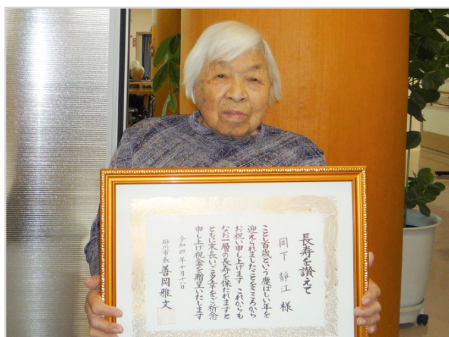 長寿を讃えて
岡下 静江 様
ことし百歳という慶ばしい年を
迎えられましたことをこころから
お祝い申し上げます これからも
なお一層の長寿を保たれますと
ともに末長いご多幸をご祈念
申し上げ祝金を贈呈いたします
令和四年十月一日
砂川市長 善岡雅文